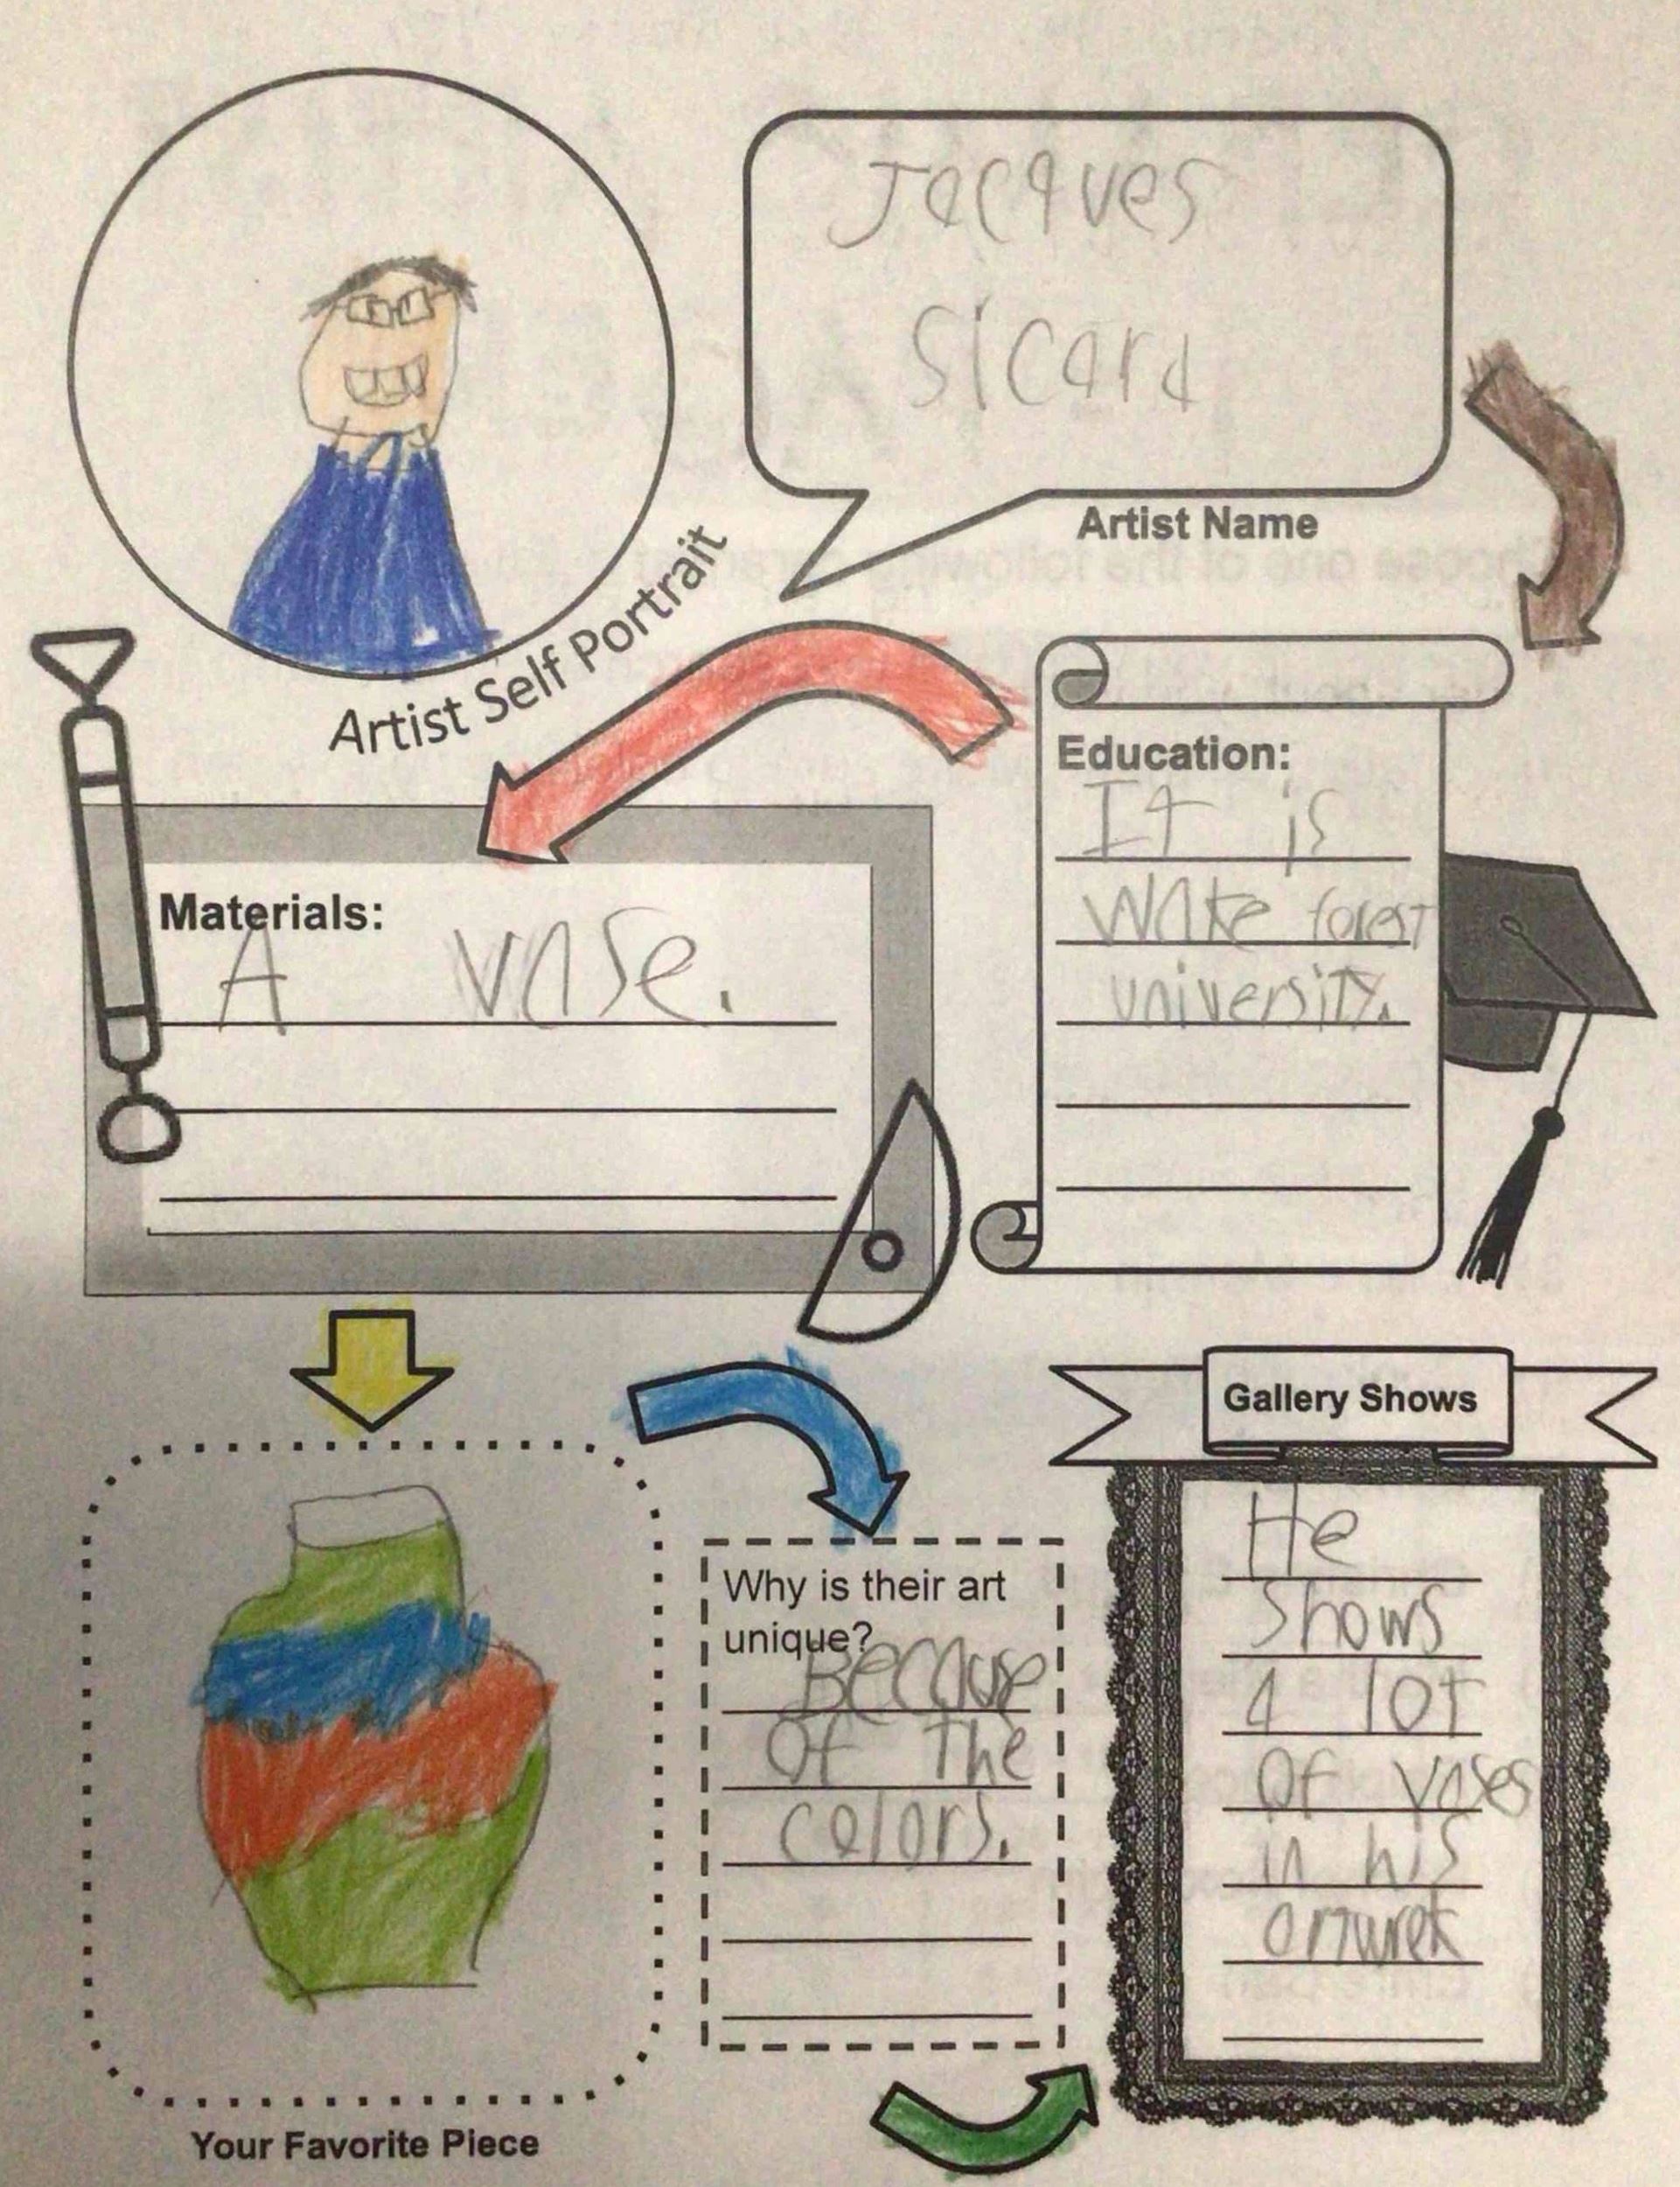 Jacques
Sicard
Artist Name
Artist Self Portrait
Education:
It is
Wake forest
university.
Materials:
A vase.
Why is their art
unique?
Because
Of The
colors.
Gallery Shows
He
shows
a lot
Of vases
in his
artwrek
Your Favorite Piece